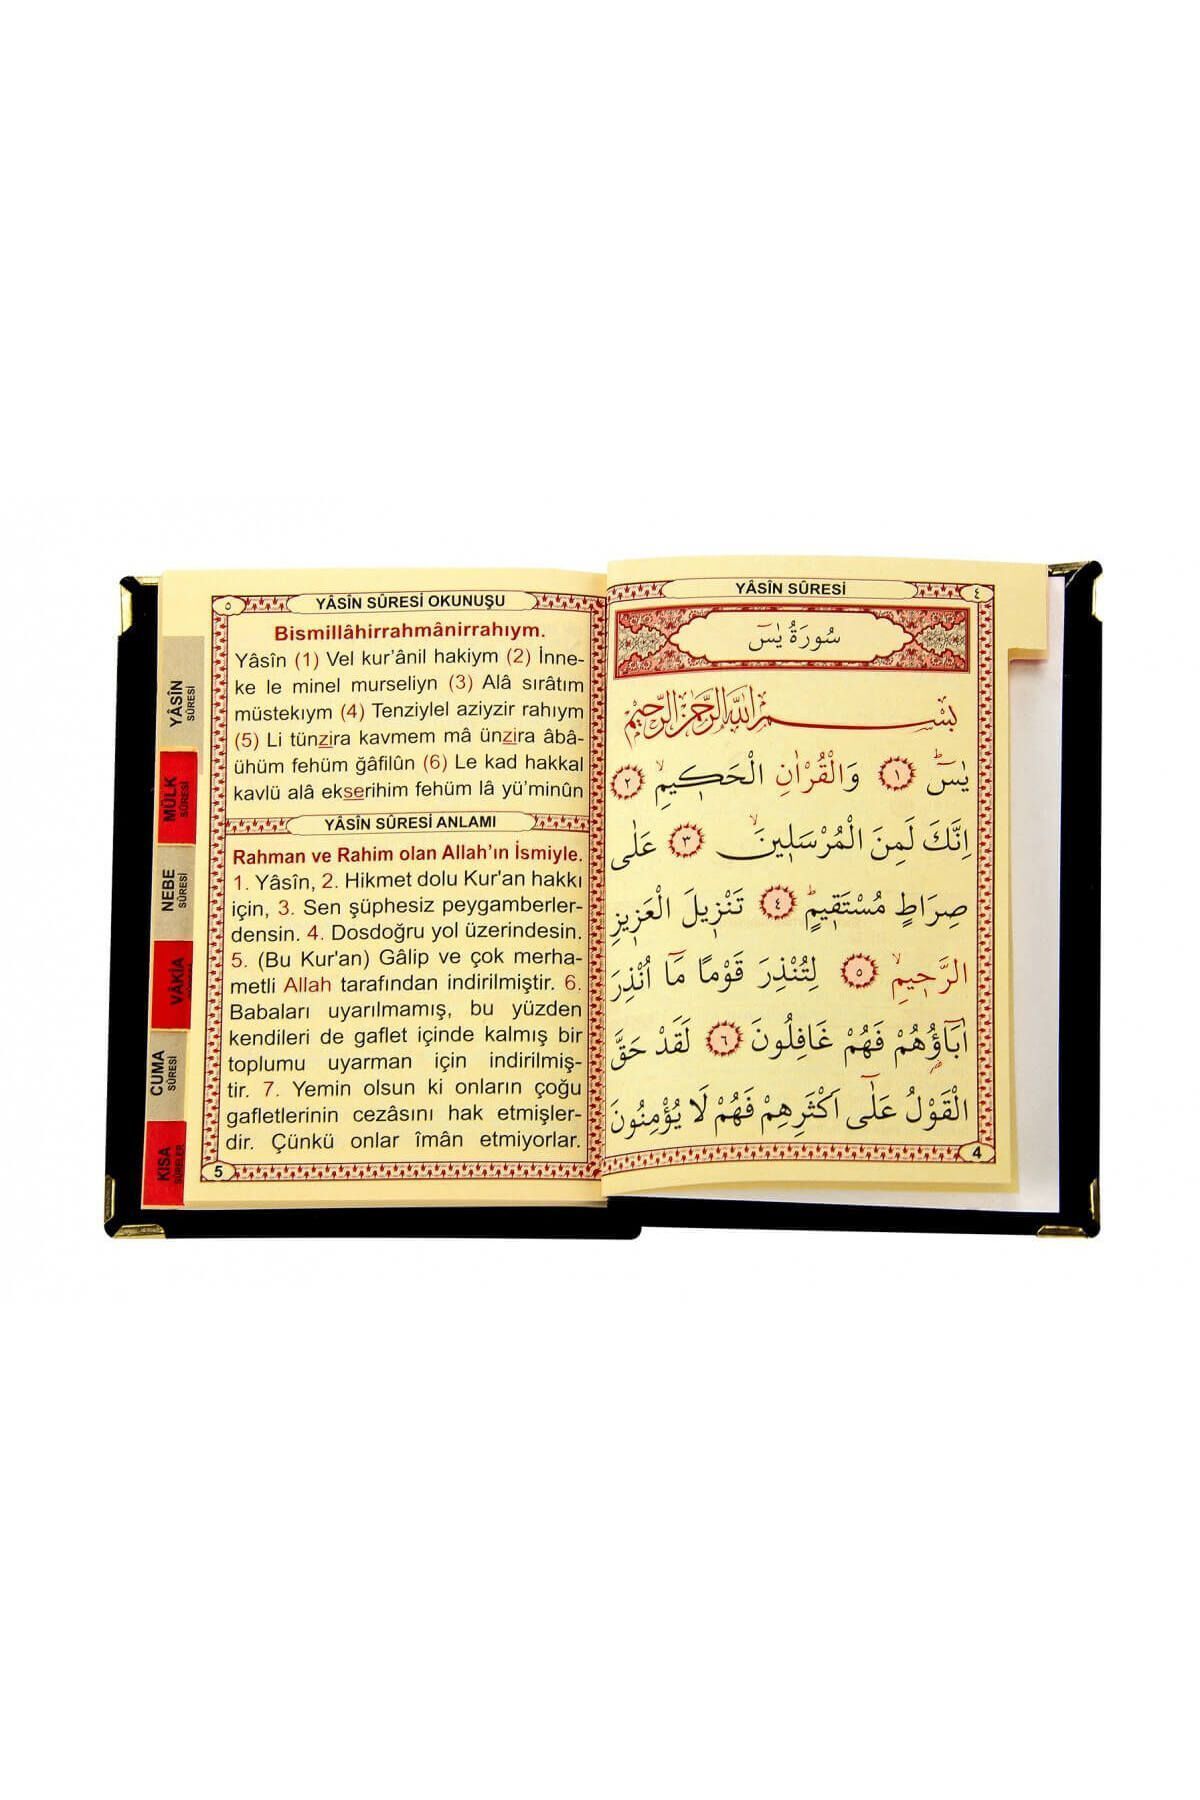 YÂSÎN SÛRESİ
٤
سُورَةُ يٰسٓ
بِسْمِ اللّٰهِ الرَّحْمٰنِ الرَّحِيمِ
يٰسٓۜ ﴿١﴾ وَالْقُرْاٰنِ الْحَك۪يمِۙ ﴿٢﴾
اِنَّكَ لَمِنَ الْمُرْسَل۪ينَۙ ﴿٣﴾ عَلٰى
صِرَاطٍ مُسْتَق۪يمٍۜ ﴿٤﴾ تَنْز۪يلَ الْعَز۪يزِ
الرَّح۪يمِۙ ﴿٥﴾ لِتُنْذِرَ قَوْمًا مَٓا اُنْذِرَ
اٰبَٓاؤُ۬هُمْ فَهُمْ غَافِلُونَ ﴿٦﴾ لَقَدْ حَقَّ
الْقَوْلُ عَلٰٓى اَكْثَرِهِمْ فَهُمْ لَا يُؤْمِنُونَ
4
٥
YÂSÎN SÛRESİ OKUNUŞU
Bismillâhirrahmânirrahıym.
Yâsîn (1) Vel kur’ânil hakiym (2) İnne-
ke le minel murseliyn (3) Alâ sırâtım
müstekıym (4) Tenziylel aziyzir rahıym
(5) Li tünzira kavmem mâ ünzira âbâ-
ühüm fehüm ğâfilûn (6) Le kad hakkal
kavlü alâ ekserihim fehüm lâ yü’minûn
YÂSÎN SÛRESİ ANLAMI
Rahman ve Rahim olan Allah’ın İsmiyle.
1. Yâsîn, 2. Hikmet dolu Kur'an hakkı
için, 3. Sen şüphesiz peygamberler-
densin. 4. Dosdoğru yol üzerindesin.
5. (Bu Kur'an) Gâlip ve çok merha-
metli Allah tarafından indirilmiştir. 6.
Babaları uyarılmamış, bu yüzden
kendileri de gaflet içinde kalmış bir
toplumu uyarman için indirilmiş-
tir. 7. Yemin olsun ki onların çoğu
gafletlerinin cezâsını hak etmişler-
dir. Çünkü onlar îmân etmiyorlar.
5
YÂSÎN
SÛRESİ
MÜLK
SÛRESİ
NEBE
SÛRESİ
VÂKIA
CUMA
SÛRESİ
KISA
SÛRELER